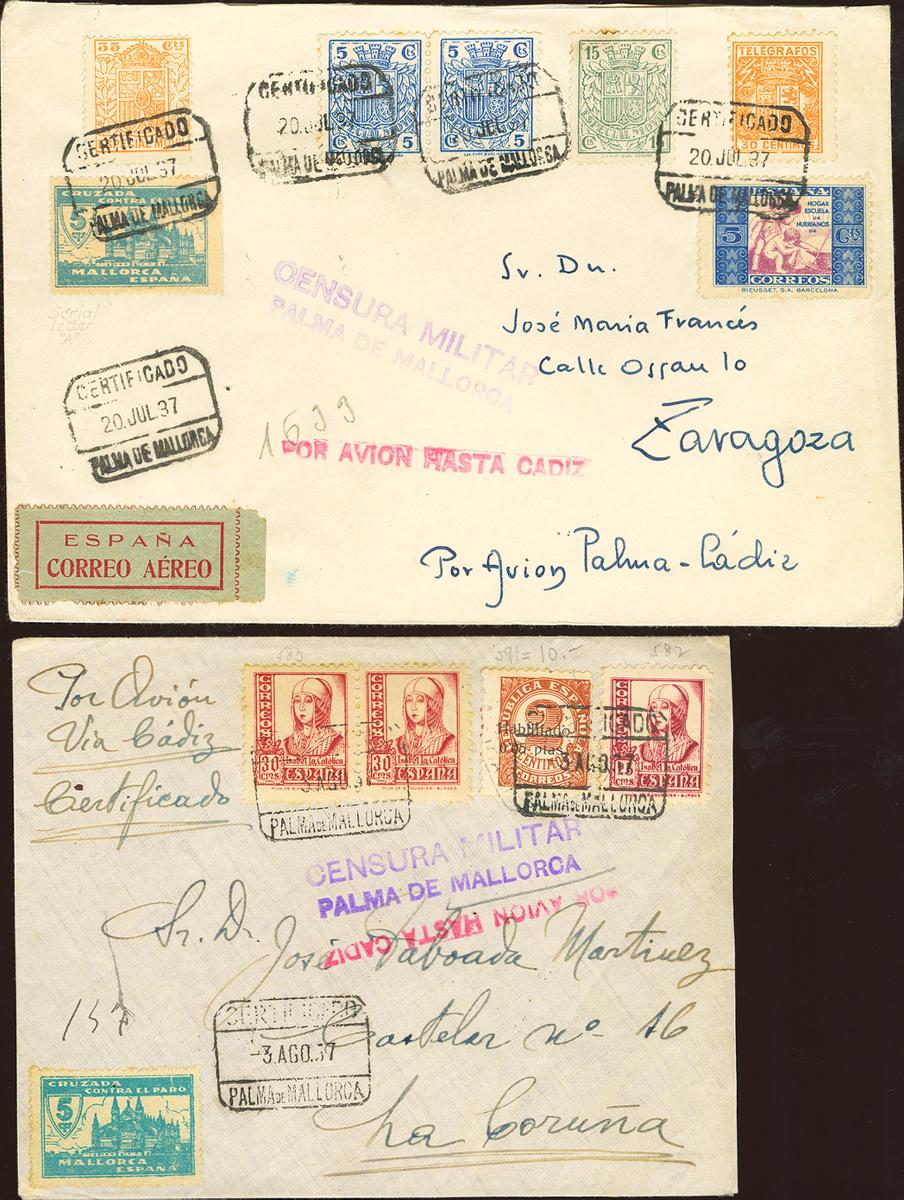 35 Cts
5 Cts
5
5 Cts
5
15 Cts
TELÉGRAFOS
30 CENTIMOS
CERTIFICADO
20.JUL.37
PALMA DE MALLORCA
CERTIFICADO
20.JUL.37
PALMA DE MALLORCA
CERTIFICADO
JUL.37
PALMA DE MALLORCA
CERTIFICADO
20.JUL.37
PALMA DE MALLORCA
CRUZADA
CONTRA EL PARO
5
MALLORCA
ESPAÑA
ESPAÑA
HOGAR
ESCUELA
DE
HUERFANOS
DE
5 Cts
CORREOS
RIEUSSET, S.A. BARCELONA
Serial
letter
"A"
CENSURA MILITAR
PALMA DE MALLORCA
Sr. Dn.
José Maria Francés
Calle
Zaragoza
CERTIFICADO
20.JUL.37
PALMA DE MALLORCA
1633
POR AVION HASTA CADIZ
ESPAÑA
CORREO AÉREO
Por Avion Palma-Cádiz
583
591=10.-
582
Por Avión
Vía Cádiz
Certificado
CORREOS
Isabel la Católica
30 cmts
ESPAÑA
CORREOS
Isabel la Católica
30 cmts
ESPAÑA
REPUBLICA ESPAÑOLA
2
Habilitado
ptas.
CENTIMOS
CORREOS
CORREOS
Isabel la Católica
ESPAÑA
3 AGO.37
PALMA DE MALLORCA
CERTIFICADO
3 AGO.37
PALMA DE MALLORCA
CENSURA MILITAR
PALMA DE MALLORCA
POR AVION HASTA CADIZ
Sr. D.
José Taboada Martinez
Castelar nº 16
La Coruña
CERTIFICADO
-3.AGO.37
PALMA DE MALLORCA
CRUZADA
CONTRA EL PARO
5
MALLORCA
ESPAÑA